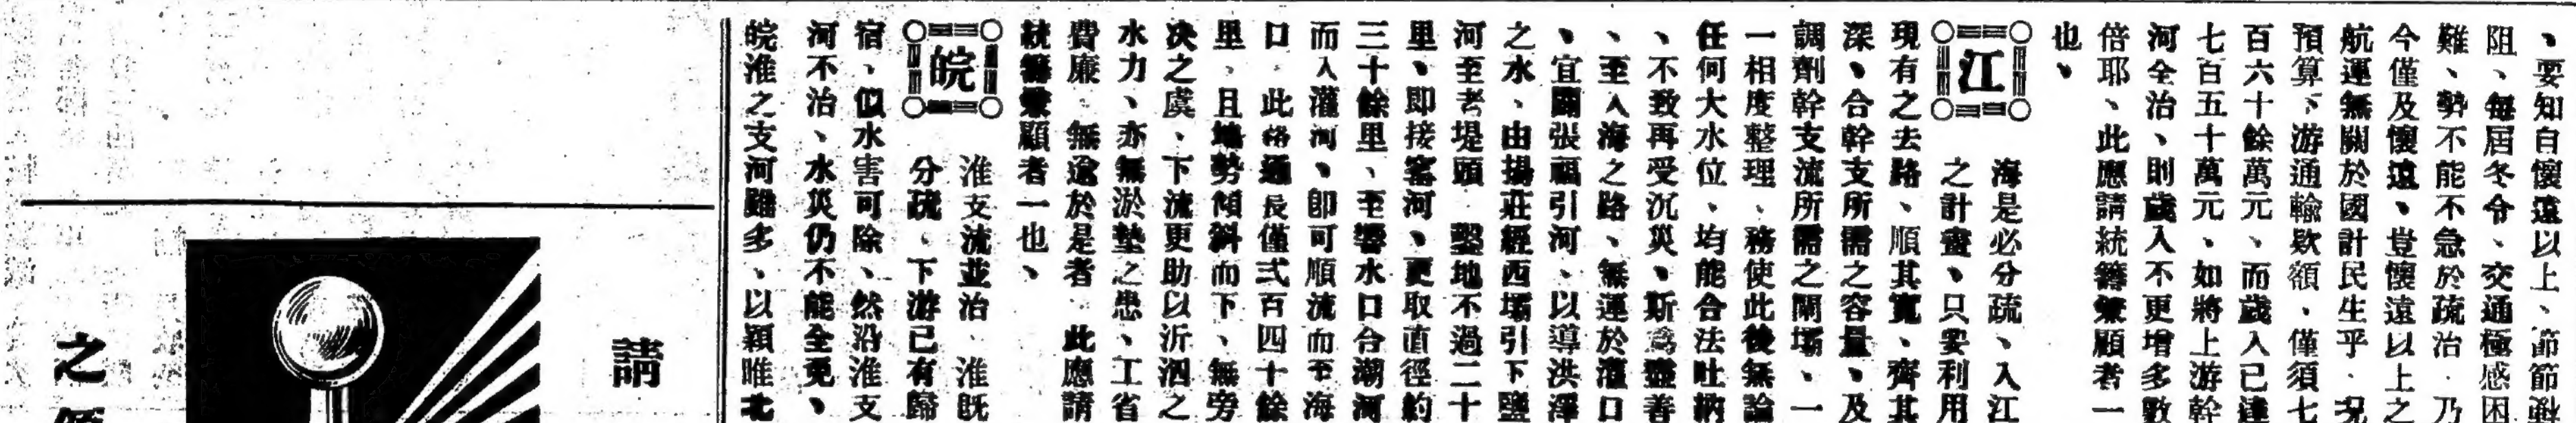 、要知自懷遠以上、節節
阻、每屆冬令、交通極感困
難、勢不能不急於疏治、乃
今僅及懷遠、豈懷遠以上之
航運無關於國計民生乎、況
預算下游通輸欵額、僅須七
百六十餘萬元、而歲入已達
七百五十萬元、如將上游幹
河全治、則歲入不更增多數
倍耶、此應請統籌兼顧者一
也、
江
海是必分疏、入江
之計畫、只要利用
現有之去路、順其寬、齊其
深、合幹支所需之容量、及
調劑幹支流所需之閘壩、一
一相度整理、務使此後無論
任何大水位、均能合法吐納
、不致再受沉災、斯爲盡善
、至入海之路、無逕於灌口
、宜闢張福引河、以導洪澤
之水、由楊莊經西壩引下鹽
河至考堤頭、鑿地不過二十
里、即接窰河、更取直徑約
三十餘里、至響水口合潮河
而入灌河、即可順流而至海
口、此路通長僅弍百四十餘
里、且地勢傾斜而下、無旁
决之虞、下流更助以沂泗之
水力、亦無淤墊之患、工省
費廉、無逾於是者、此應請
統籌兼顧者一也、
皖
淮支流並治、淮既
分疏、下游已有歸
宿、似水害可除、然沿淮支
河不治、水災仍不能全免、
皖淮之支河雖多、以潁睢北
請
之